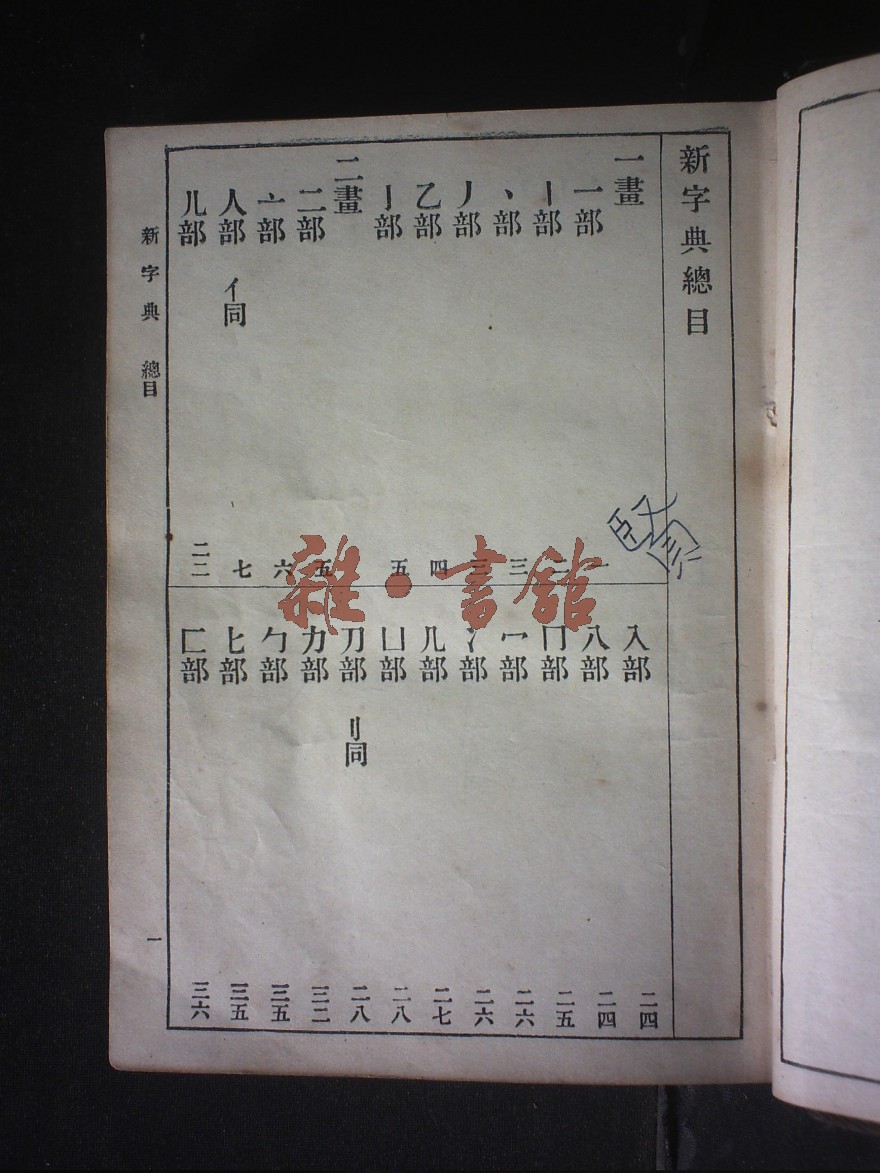 新字典總目
一畫
一部 一
丨部 二
丶部 三
丿部 三
乙部 四
亅部 五
二畫
二部 五
亠部 六
人部 亻同 七
儿部 二二
入部 二四
八部 二四
冂部 二五
冖部 二六
冫部 二六
几部 二七
凵部 二八
刀部 刂同 二八
力部 三二
勹部 三五
匕部 三五
匚部 三六
新字典 總目 一
雜·書館